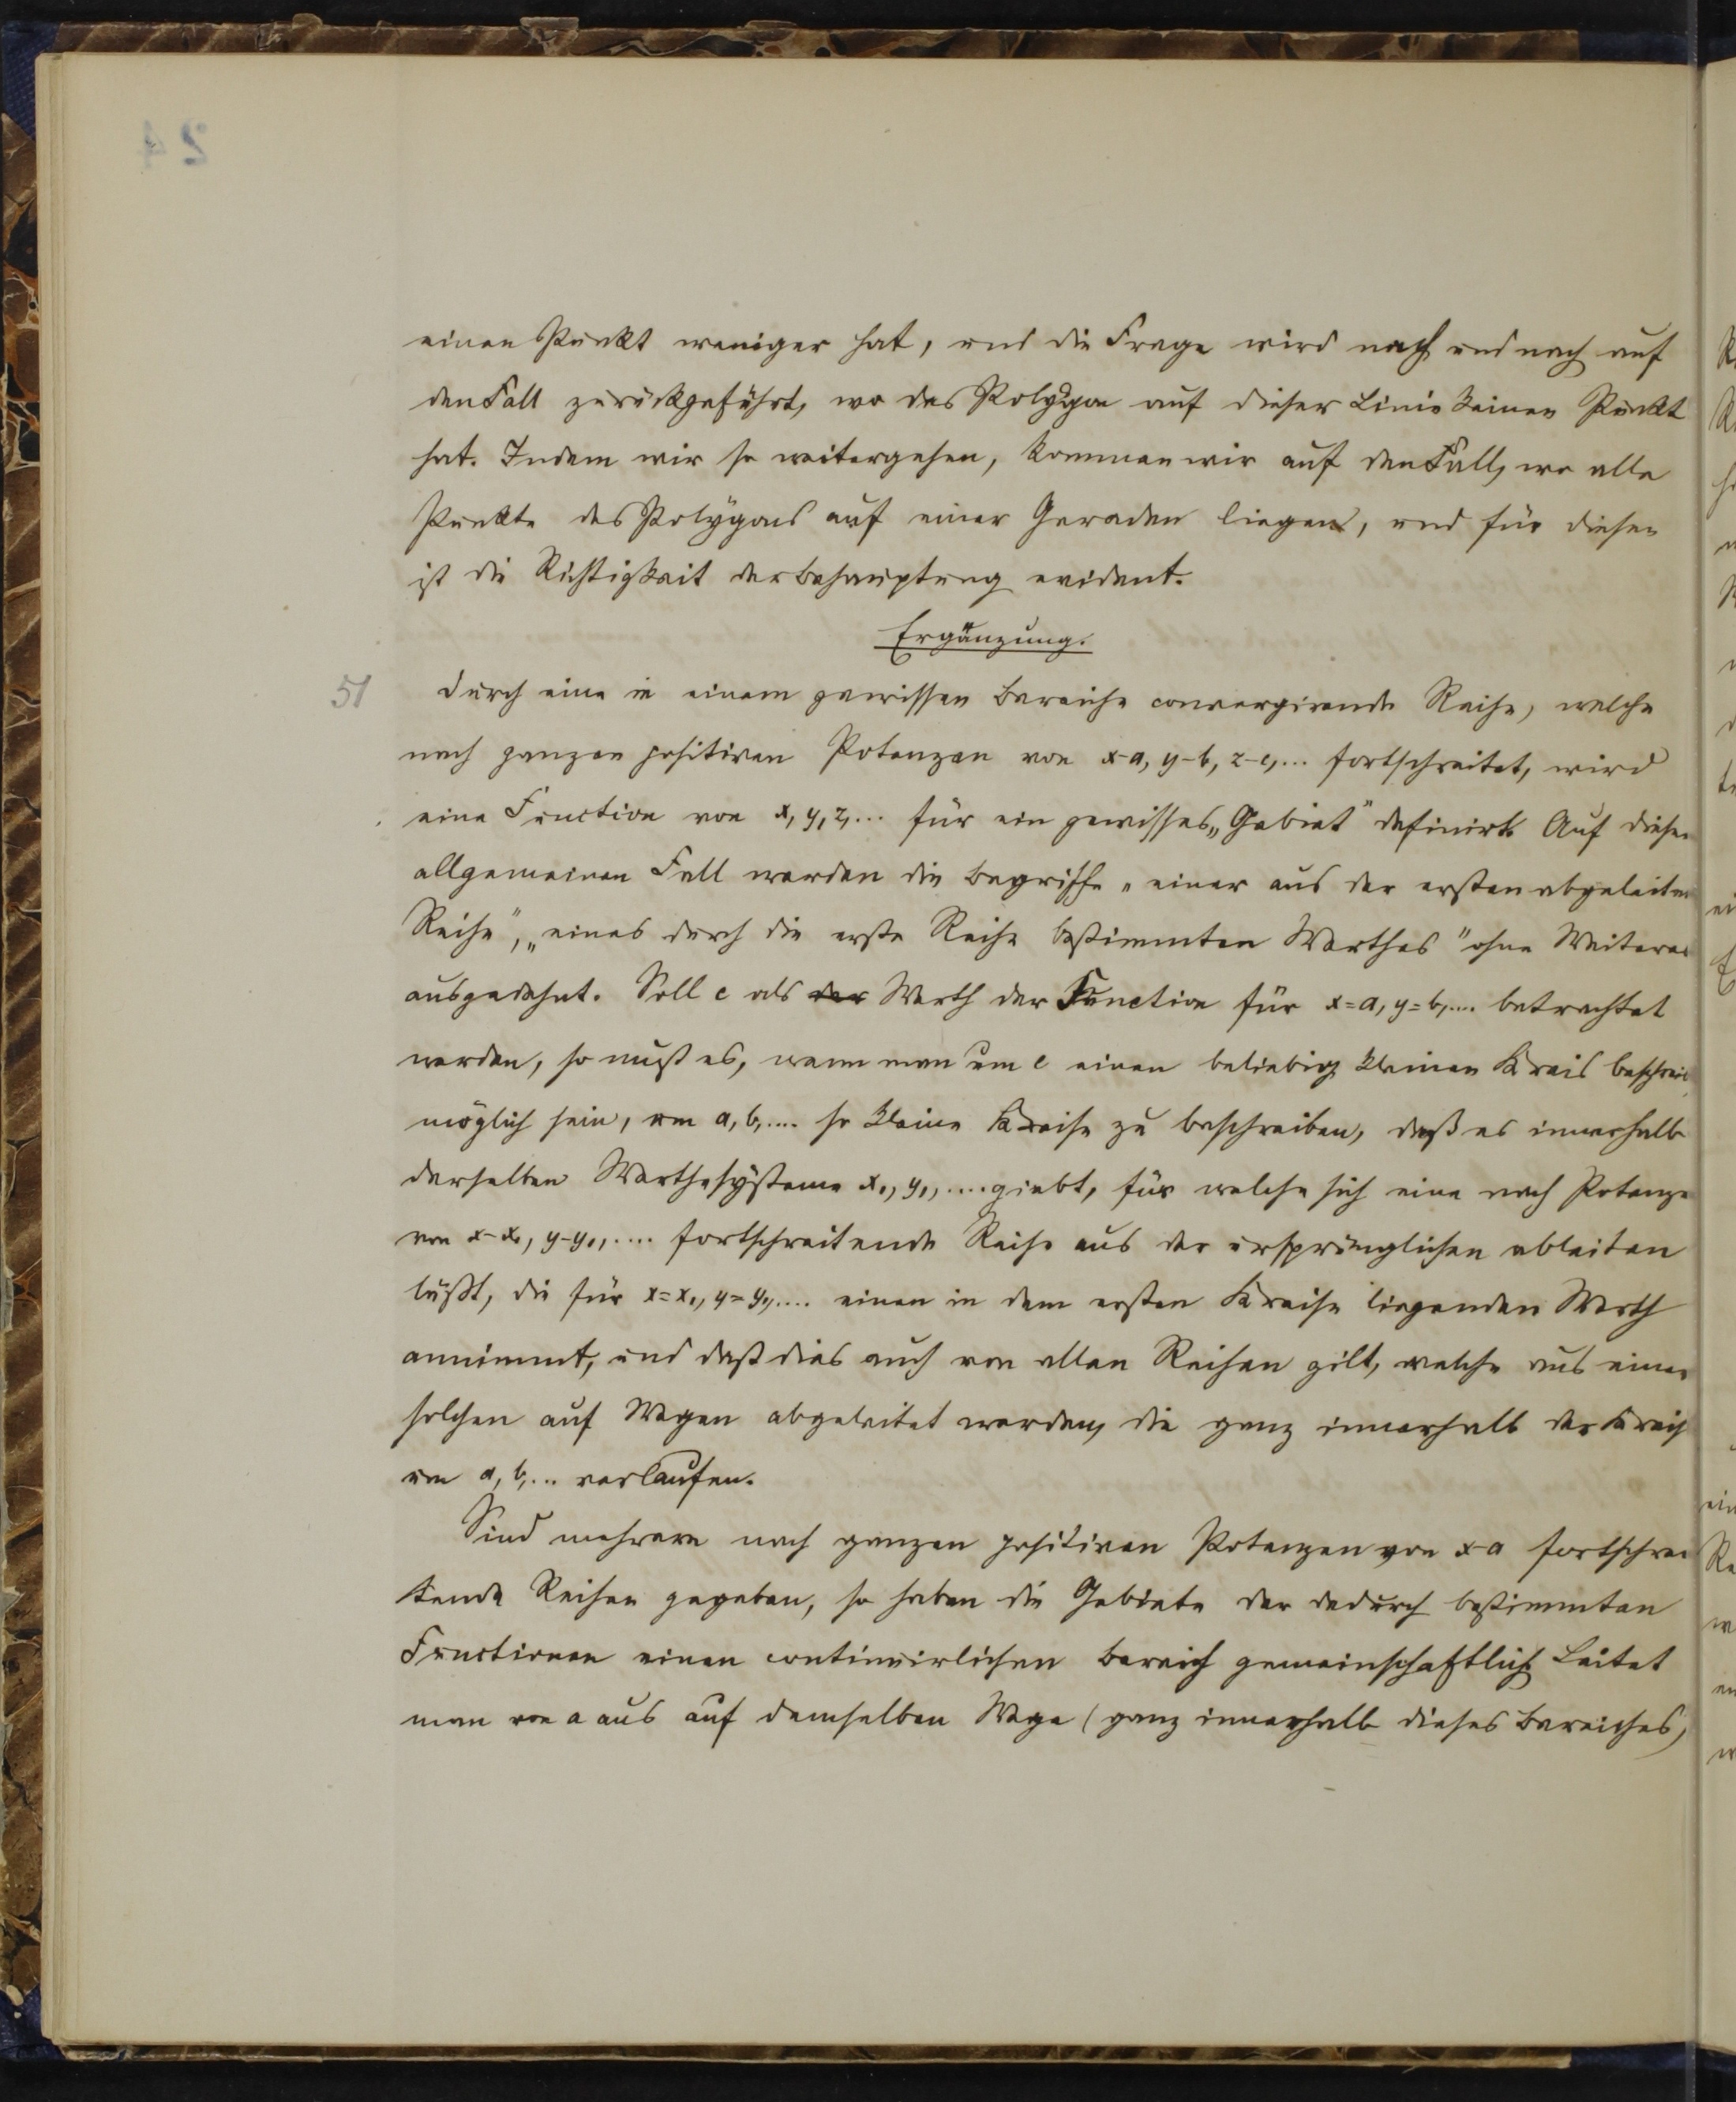 24
einen Punkt weniger hat, und die Frage wird nach und nach auf
den Fall zurückgeführt, wo das Polygon auf dieser Linie keinen Punkt
hat. Indem wir so weitergehen, kommen wir auf den Fall, wo alle
Punkte des Polygons auf einer Geraden liegen, und für diesen
ist die Richtigkeit der Behauptung evident.
Ergänzung.
51 Durch eine in einem gewissen Bereiche convergirende Reihe, welche
nach ganzen positiven Potenzen von x-a, y-b, z-c,... fortschreitet, wird
eine Function von x, y, z,... für ein gewisses „Gebiet" definirt. Auf diesen
allgemeinen Fall werden die Begriffe „einer aus der ersten abgeleiten
Reihe", „eines durch die erste Reihe bestimmten Werthes" ohne Weiteres
ausgedehnt. Soll c als der Werth der Function für x=a, y=b,.... betrachtet
werden, so muß es, wenn man um c einen beliebig kleinen Kreis beschreib
möglich sein, um a, b,.... so kleine Kreise zu beschreiben, daß es innerhalb
derselben Werthesysteme x₁, y₁,.... giebt, für welche sich eine nach Potenze
von x-x₁, y-y₁,.... fortschreitende Reihe aus der ursprünglichen ableiten
läßt, die für x=x₁, y=y₁,.... einen in dem ersten Kreise liegenden Werth
annimmt, und daß dies auch von allen Reihen gilt, welche aus einer
solchen auf Wegen abgeleitet werden, die ganz innerhalb der Kreise
um a, b,... verlaufen.
Sind mehrere nach ganzen positiven Potenzen von x-a fortschrei
tende Reihen gegeben, so haben die Gebiete der dadurch bestimmten
Functionen einen continuirlichen Bereich gemeinschaftlich. Leitet
man von a aus auf demselben Wege (ganz innerhalb dieses Bereiches)